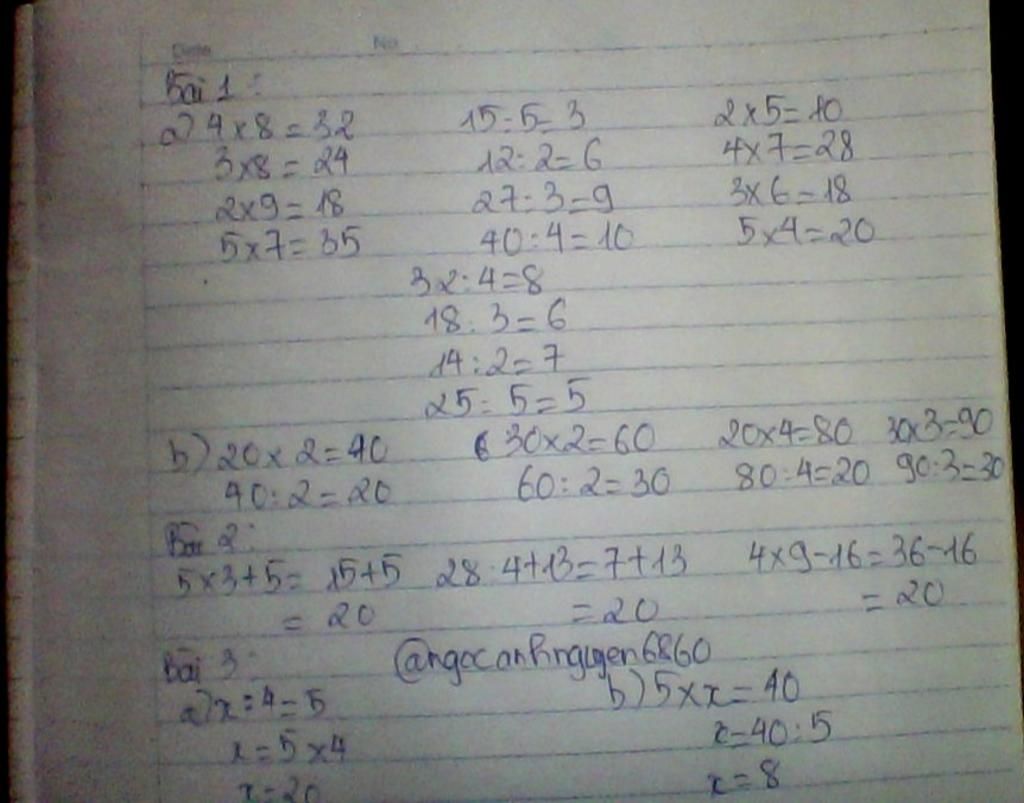 Date No
Bài 1:
a) 4 x 8 = 32 15 : 5 = 3 2 x 5 = 10
3 x 8 = 24 12 : 2 = 6 4 x 7 = 28
2 x 9 = 18 27 : 3 = 9 3 x 6 = 18
5 x 7 = 35 40 : 4 = 10 5 x 4 = 20
32 : 4 = 8
18 : 3 = 6
14 : 2 = 7
25 : 5 = 5
b) 20 x 2 = 40 30 x 2 = 60 20 x 4 = 80 30 x 3 = 90
40 : 2 = 20 60 : 2 = 30 80 : 4 = 20 90 : 3 = 30
Bài 2:
5 x 3 + 5 = 15 + 5 28 : 4 + 13 = 7 + 13 4 x 9 - 16 = 36 - 16
= 20 = 20 = 20
Bài 3: @ngocanhnguyen6860
a) x : 4 = 5 b) 5 x x = 40
x = 5 x 4 x = 40 : 5
x = 20 x = 8